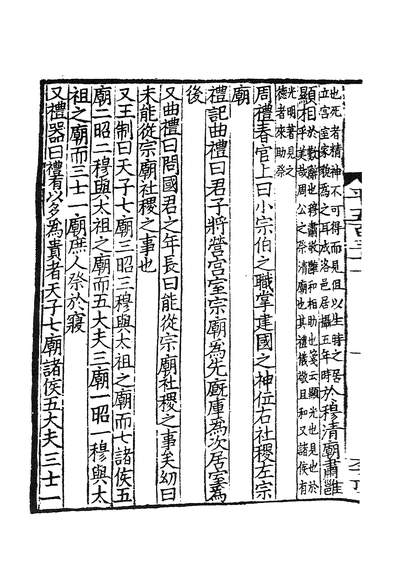 也死者精神不可得而見但以生時之居
立宮室象貌為之耳成洛邑居攝五年時
於穆清廟肅雝
顯相
於歎辭也穆美肅敬雝和相助也箋云顯光也見也於
乎美哉周公之祭清廟也其禮儀敬且和又諸侯有
光明著見之
德者來助祭
周禮春官上曰小宗伯之職掌建國之神位右社稷左宗
廟
禮記曲禮曰君子將營宮室宗廟為先廐庫為次居室為
後
又曲禮曰問國君之年長曰能從宗廟社稷之事矣幼曰
未能從宗廟社稷之事也
又王制曰天子七廟三昭三穆與太祖之廟而七諸侯五
廟二昭二穆與太祖之廟而五大夫三廟一昭一穆與太
祖之廟而三士一廟庶人祭於寢
又禮器曰禮有以多為貴者天子七廟諸侯五大夫三士一